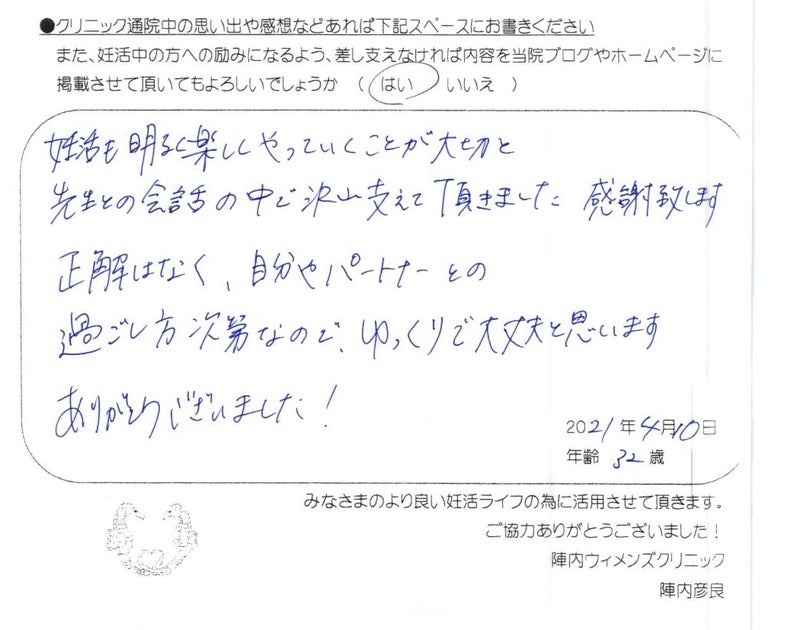 ●クリニック通院中の思い出や感想などあれば下記スペースにお書きください
また、妊活中の方への励みになるよう、差し支えなければ内容を当院ブログやホームページに
掲載させて頂いてもよろしいでしょうか （ はい いいえ ）
妊活も明るく楽しくやっていくことが大切と
先生との会話の中で沢山支えて頂きました 感謝致します
正解はなく、自分やパートナーとの
過ごし方次第なので、ゆっくりで大丈夫と思います
ありがとうございました！
2021年4月10日
年齢 32歳
みなさまのより良い妊活ライフの為に活用させて頂きます。
ご協力ありがとうございました！
陣内ウィメンズクリニック
陣内彦良